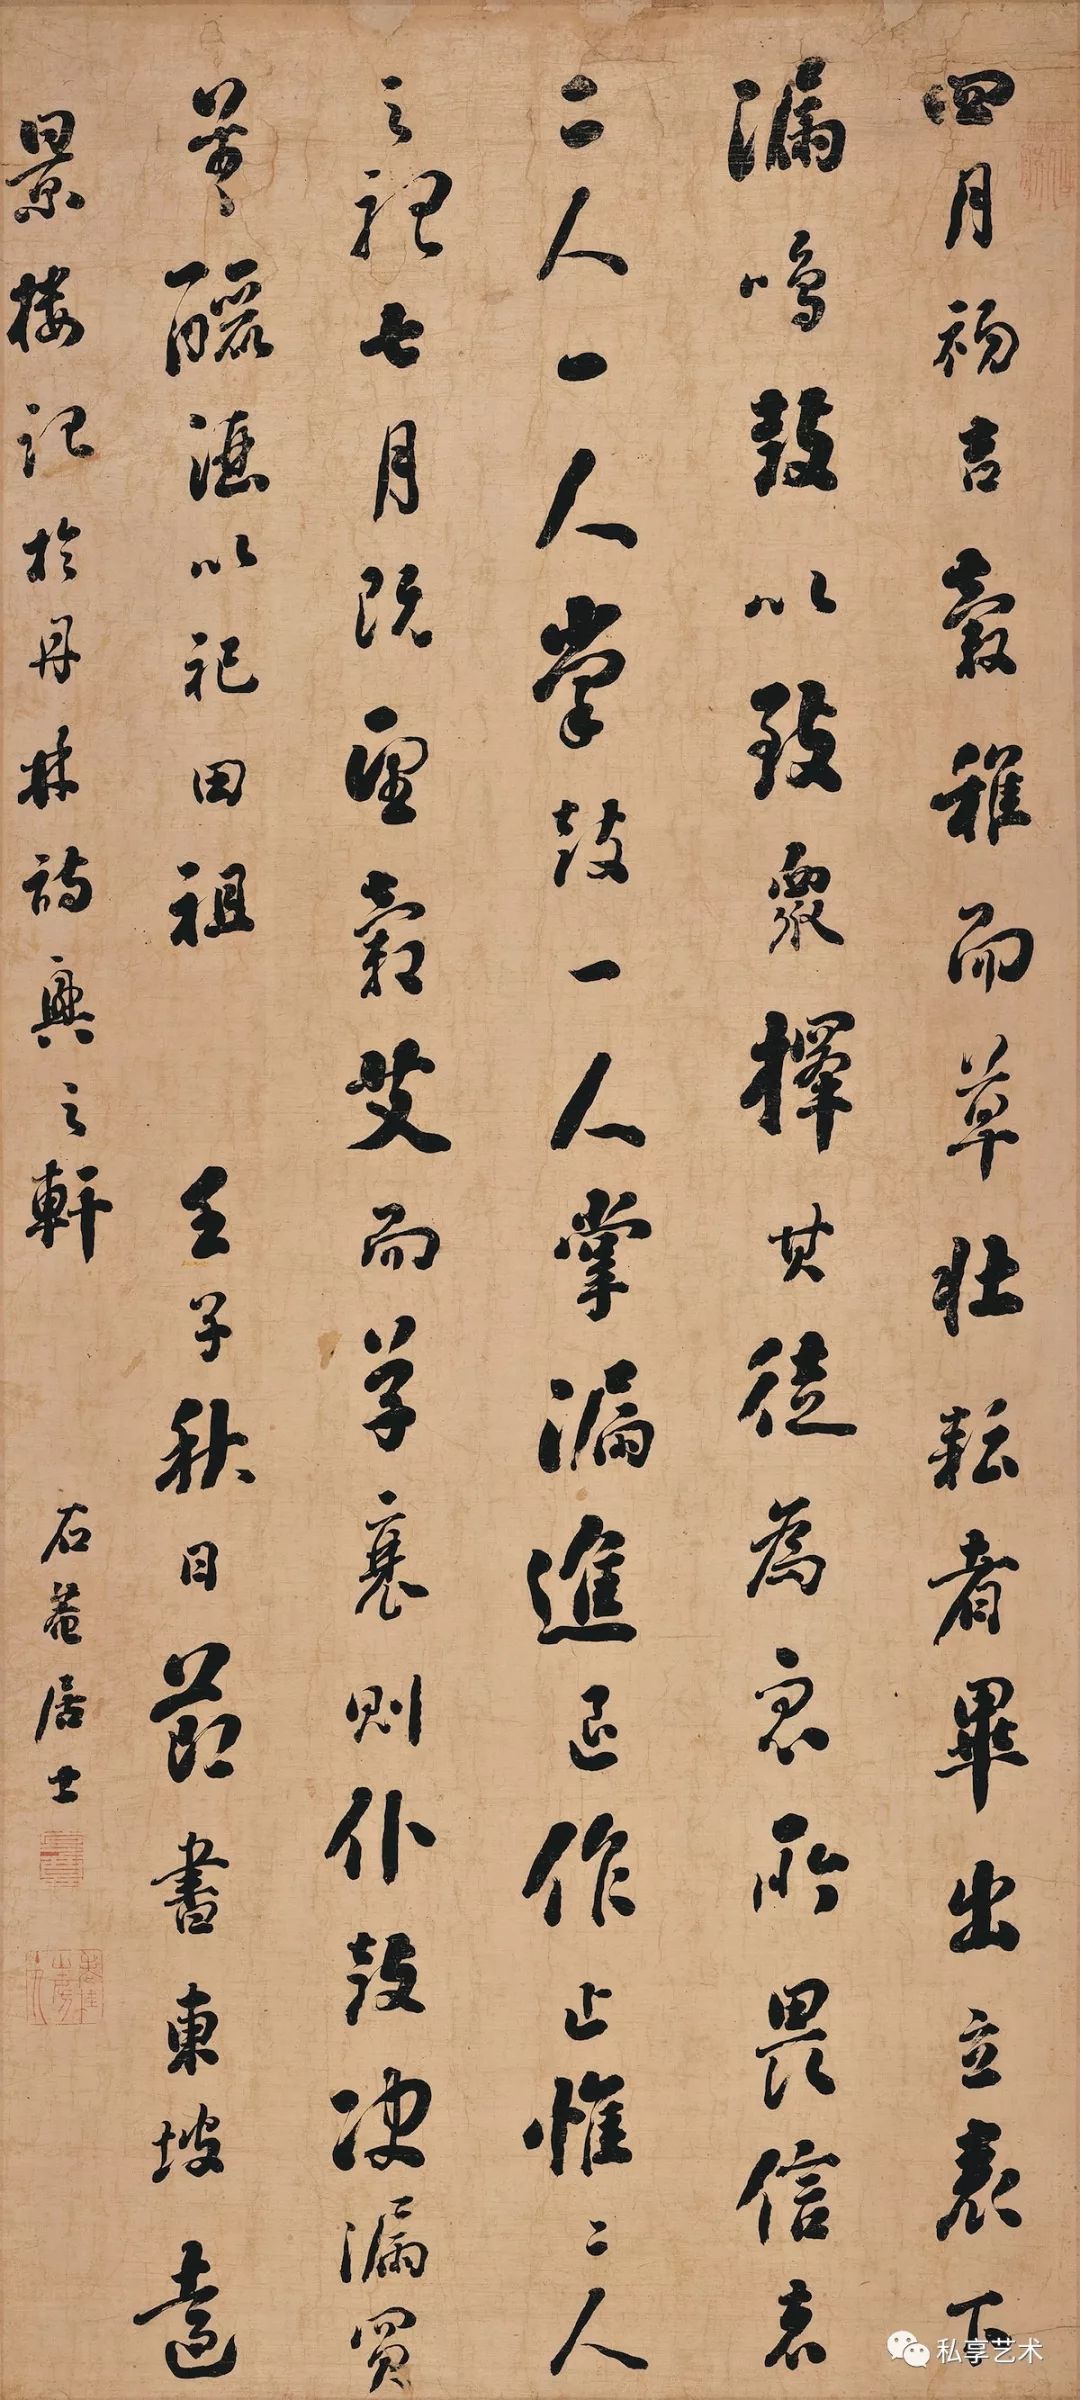 四月初吉穀稚而草壯耘者畢出立表下
漏鳴鼓以致眾擇其徒為眾所畏信者
二人一人掌鼓一人掌漏進退作止惟二人
之聽七月既望穀艾而草衰則仆鼓决漏買
羊釃酒以祀田祖 壬子秋日節書東坡遠
景樓記於丹林詩興之軒 石菴居士
私享艺术